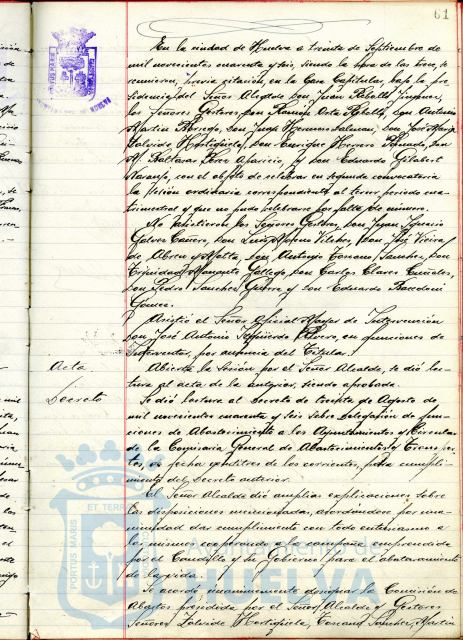 61
En la ciudad de Huelva a treinta de Septiembre de
mil novecientos cuarenta y seis, siendo la hora de las doce, se
reunieron, previa citación, en la Casa Capitular, bajo la pre-
sidencia del Señor Alcalde Don Juan Rebollo Jimenez,
los Señores Gestores Don Ramón Orta Rebollo, Don Antonio
Martin Bermejo, Don José Hermoso Don José María
Zalvide Hortigüela, Don Enrique Herrero Don
M. Baltasar Perez Aparicio, y Don Eduardo Gilabert
Naranjo, con el objeto de celebrar en segunda convocatoria
la sesión ordinaria correspondiente al tercer periodo cua-
trimestral y que no pudo celebrarse por falta de número.
No asistieron los Señores Gestores, Don Juan Ignacio
Galvez Cañero, Don Luis Don José
de Abreu y Motta, Don Antonio Toscano Sanchez, Don
Trinidad Gallego, Don Carlos Claver
Don Pedro Sanchez y Don Eduardo
Gómez.
Asistió el Señor Oficial Mayor de Intervención
Don José Antonio Izquierdo en funciones de
Interventor, por ausencia del Titular.
Acta
Abierta la sesión por el Señor Alcalde, se dió lec-
tura al acta de la anterior, siendo aprobada.
Decreto
Se dió lectura al Decreto de treinta de Agosto de
mil novecientos cuarenta y seis sobre delegación de fun-
ciones de Abastecimiento a los Ayuntamientos y Circular
de la Comisaría General de Abastecimientos y Transpor-
tes, de fecha de los corrientes, para cumpli-
miento del Decreto anterior.
El Señor Alcalde dió amplias explicaciones sobre
las disposiciones mencionadas, acordándose por una-
nimidad dar cumplimiento con todo entusiasmo a
las mismas cooperando a la campaña emprendida
por el Caudillo y su Gobierno para el abaratamiento
de la vida.
Se acordó unanimemente designar la Comisión de
Abastos presidida por el Señor Alcalde y Gestores
Señores Zalvide Hortigüela, Toscano Sanchez, Martin
PORTUS MARIS
ET TERRAE
Ayuntamiento de
HUELVA